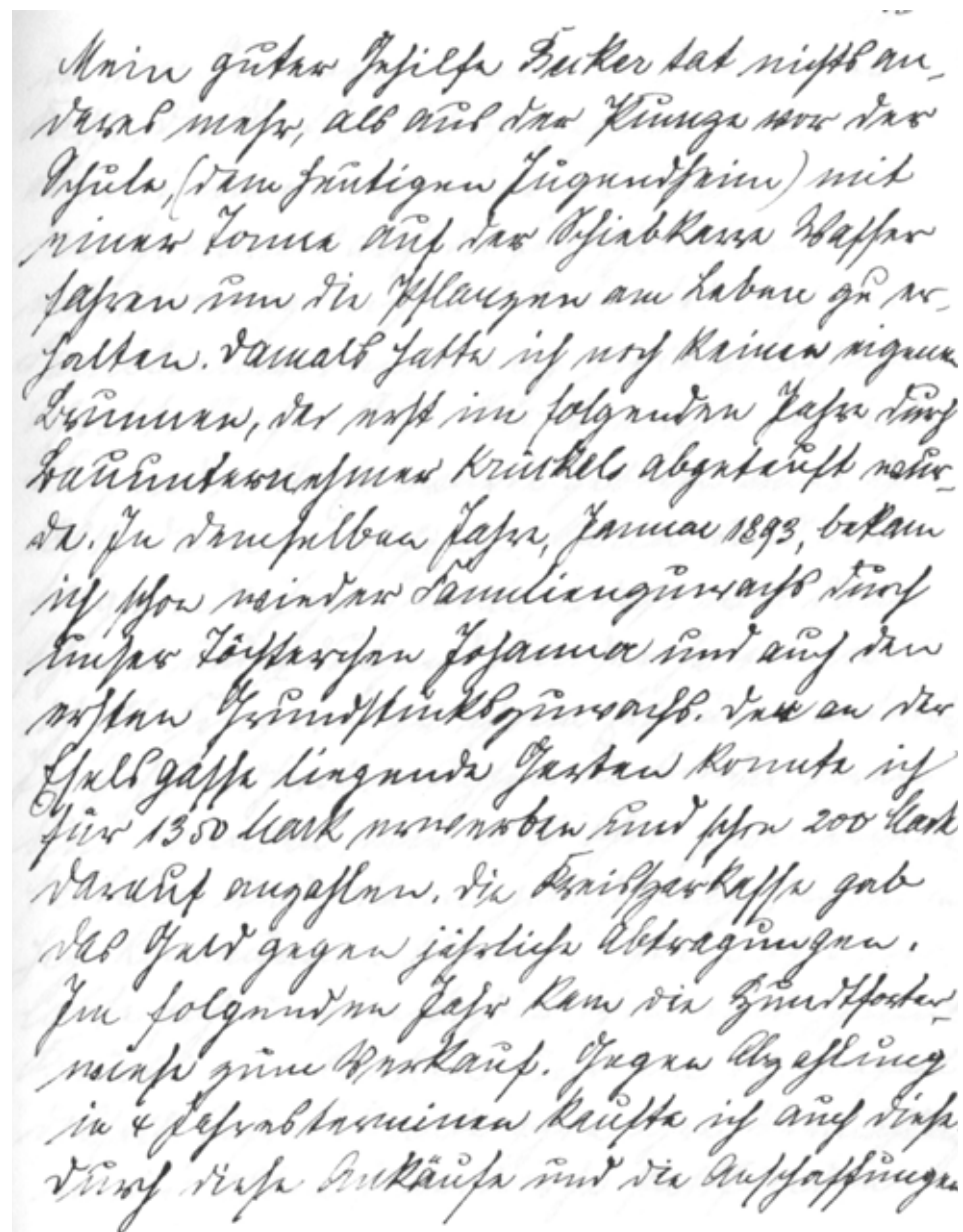 Mein guter Gehilfe Becker tat nichts an-
deres mehr, als aus der Pumpe vor der
Schule, (dem heutigen Jugendheim) mit
einer Tonne auf der Schiebkarre Wasser
fahren um die Pflanzen am Leben zu er-
halten. Damals hatte ich noch keinen eigenen
Brunnen, der erst im folgenden Jahre durch
Bauunternehmer Krückels abgeteuft wur-
de. In demselben Jahre, Januar 1893, bekam
ich schon wieder Familienzuwachs durch
unser Töchterchen Johanna und auch den
ersten Grundstückszuwachs. Der an der
Eselsgasse liegende Garten konnte ich
für 1350 Mark erwerben und schon 200 Mark
darauf anzahlen. Die Kreissparkasse gab
das Geld gegen jährliche Abtragungen.
Im folgenden Jahr kam die
wiese zum Verkauf. Gegen Abzahlung
in 4 Jahresterminen kaufte ich auch diese
durch diese Ankäufe und die Anschaffungen